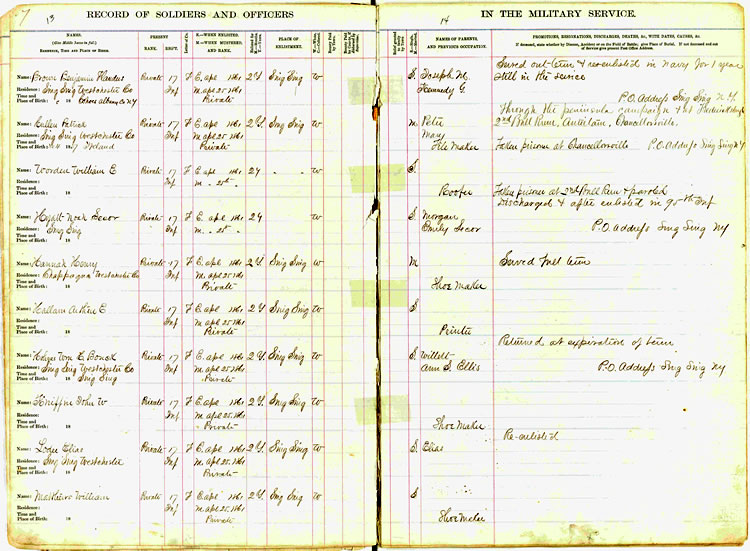 13
RECORD OF SOLDIERS AND OFFICERS
14
IN THE MILITARY SERVICE.
NAMES.
(Give Middle Name in full.)
RESIDENCE, TIME AND PLACE OF BIRTH.
PRESENT
RANK. REGT.
Letter of Co.
E.—WHEN ENLISTED.
M—WHEN MUSTERED,
AND RANK.
PLACE OF
ENLISTMENT.
NAMES OF PARENTS,
AND PREVIOUS OCCUPATION.
PROMOTIONS, RESIGNATIONS, DISCHARGES, DEATHS, &c., WITH DATES, CAUSES, &c.
Name: Brown Benjamin Private 17 F E. apl 1861 2 Y. Sing Sing W S. Joseph M. Served out term & re-enlisted in Navy for 1 year
Residence: Sing Sing Westchester Co Inf M. apl 25 1861 Kennedy G. Still in the service
Time and
Place of Birth: 18 Albany Co NY Private P.O. Address Sing Sing N.Y.
Name: Patrick Private 17 F E. apl 1861 2 Y. Sing Sing W M Peter Through the peninsula campaign
Residence: Sing Sing Westchester Co Inf M. apl 25 1861 Mary 2nd Bull Run, Antietam, Chancellorsville.
Time and
Place of Birth: 18 Ireland Private File Maker Taken prisoner at Chancellorsville P.O. Address Sing Sing N.Y.
Name: Worden William E Private 17 F E. apl 1861 S.
Residence: Inf M.
Time and
Place of Birth: 18 Roofer Taken prisoner at 2nd Bull Run & paroled
Discharged & after enlisted in 95th Inf
Name: Hyatt Noah Secor Private 17 F E. apl 1861 S Morgan
Residence: Sing Sing Inf M. Emily Secor P.O. Address Sing Sing NY
Time and
Place of Birth: 18
Name: Hannah Henry Private 17 F E. apl 1861 2 Y Sing Sing W M Served full term
Residence: Chappaqua Westchester Co Inf M apl 25 1861
Time and
Place of Birth: 18 Private Shoe Maker
Name: Hallam E Private 17 F E. apl 1861 2 Y Sing Sing W S.
Residence: Inf M apl 25 1861
Time and
Place of Birth: 18 Private Printer
Returned at expiration of term
Name: Private 17 F E. apl 1861 2 Y Sing Sing W S. Willett
Residence: Sing Sing Westchester Co Inf M apl 25 1861 Ann S. Ellis P.O. Address Sing Sing NY
Time and
Place of Birth: 18 Sing Sing Private
Name: Kniffin John W Private 17 F E. apl 1861 2 Y. Sing Sing W
Residence: Inf M apl 25. 1861
Time and
Place of Birth: 18 Private Shoe Maker
Re-enlisted
Name: Elias Private 17 F E. apl 1861 2 Y. Sing Sing W S. Elias
Residence: Sing Sing Westchester Inf M apl 25. 1861
Time and
Place of Birth: 18 Private
Name: Matthews William Private 17 F E. apl 1861 2 Y. Sing Sing W S
Residence: Inf M apl 25. 1861
Time and
Place of Birth: 18 Private Shoe Maker